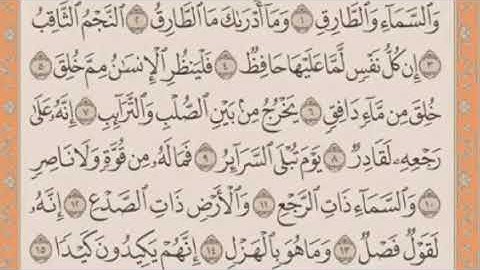 وَٱلسَّمَآءِ وَٱلطَّارِقِ ١ وَمَآ أَدۡرَىٰكَ مَا ٱلطَّارِقُ ٢ ٱلنَّجۡمُ ٱلثَّاقِبُ
٣ إِن كُلُّ نَفۡسٖ لَّمَّا عَلَيۡهَا حَافِظٞ ٤ فَلۡيَنظُرِ ٱلۡإِنسَٰنُ مِمَّ خُلِقَ ٥
خُلِقَ مِن مَّآءٖ دَافِقٖ ٦ يَخۡرُجُ مِنۢ بَيۡنِ ٱلصُّلۡبِ وَٱلتَّرَآئِبِ ٧ إِنَّهُۥ عَلَىٰ
رَجۡعِهِۦ لَقَادِرٞ ٨ يَوۡمَ تُبۡلَى ٱلسَّرَآئِرُ ٩ فَمَا لَهُۥ مِن قُوَّةٖ وَلَا نَاصِرٖ
١٠ وَٱلسَّمَآءِ ذَاتِ ٱلرَّجۡعِ ١١ وَٱلۡأَرۡضِ ذَاتِ ٱلصَّدۡعِ ١٢ إِنَّهُۥ
لَقَوۡلٞ فَصۡلٞ ١٣ وَمَا هُوَ بِٱلۡهَزۡلِ ١٤ إِنَّهُمۡ يَكِيدُونَ كَيۡدٗا ١٥